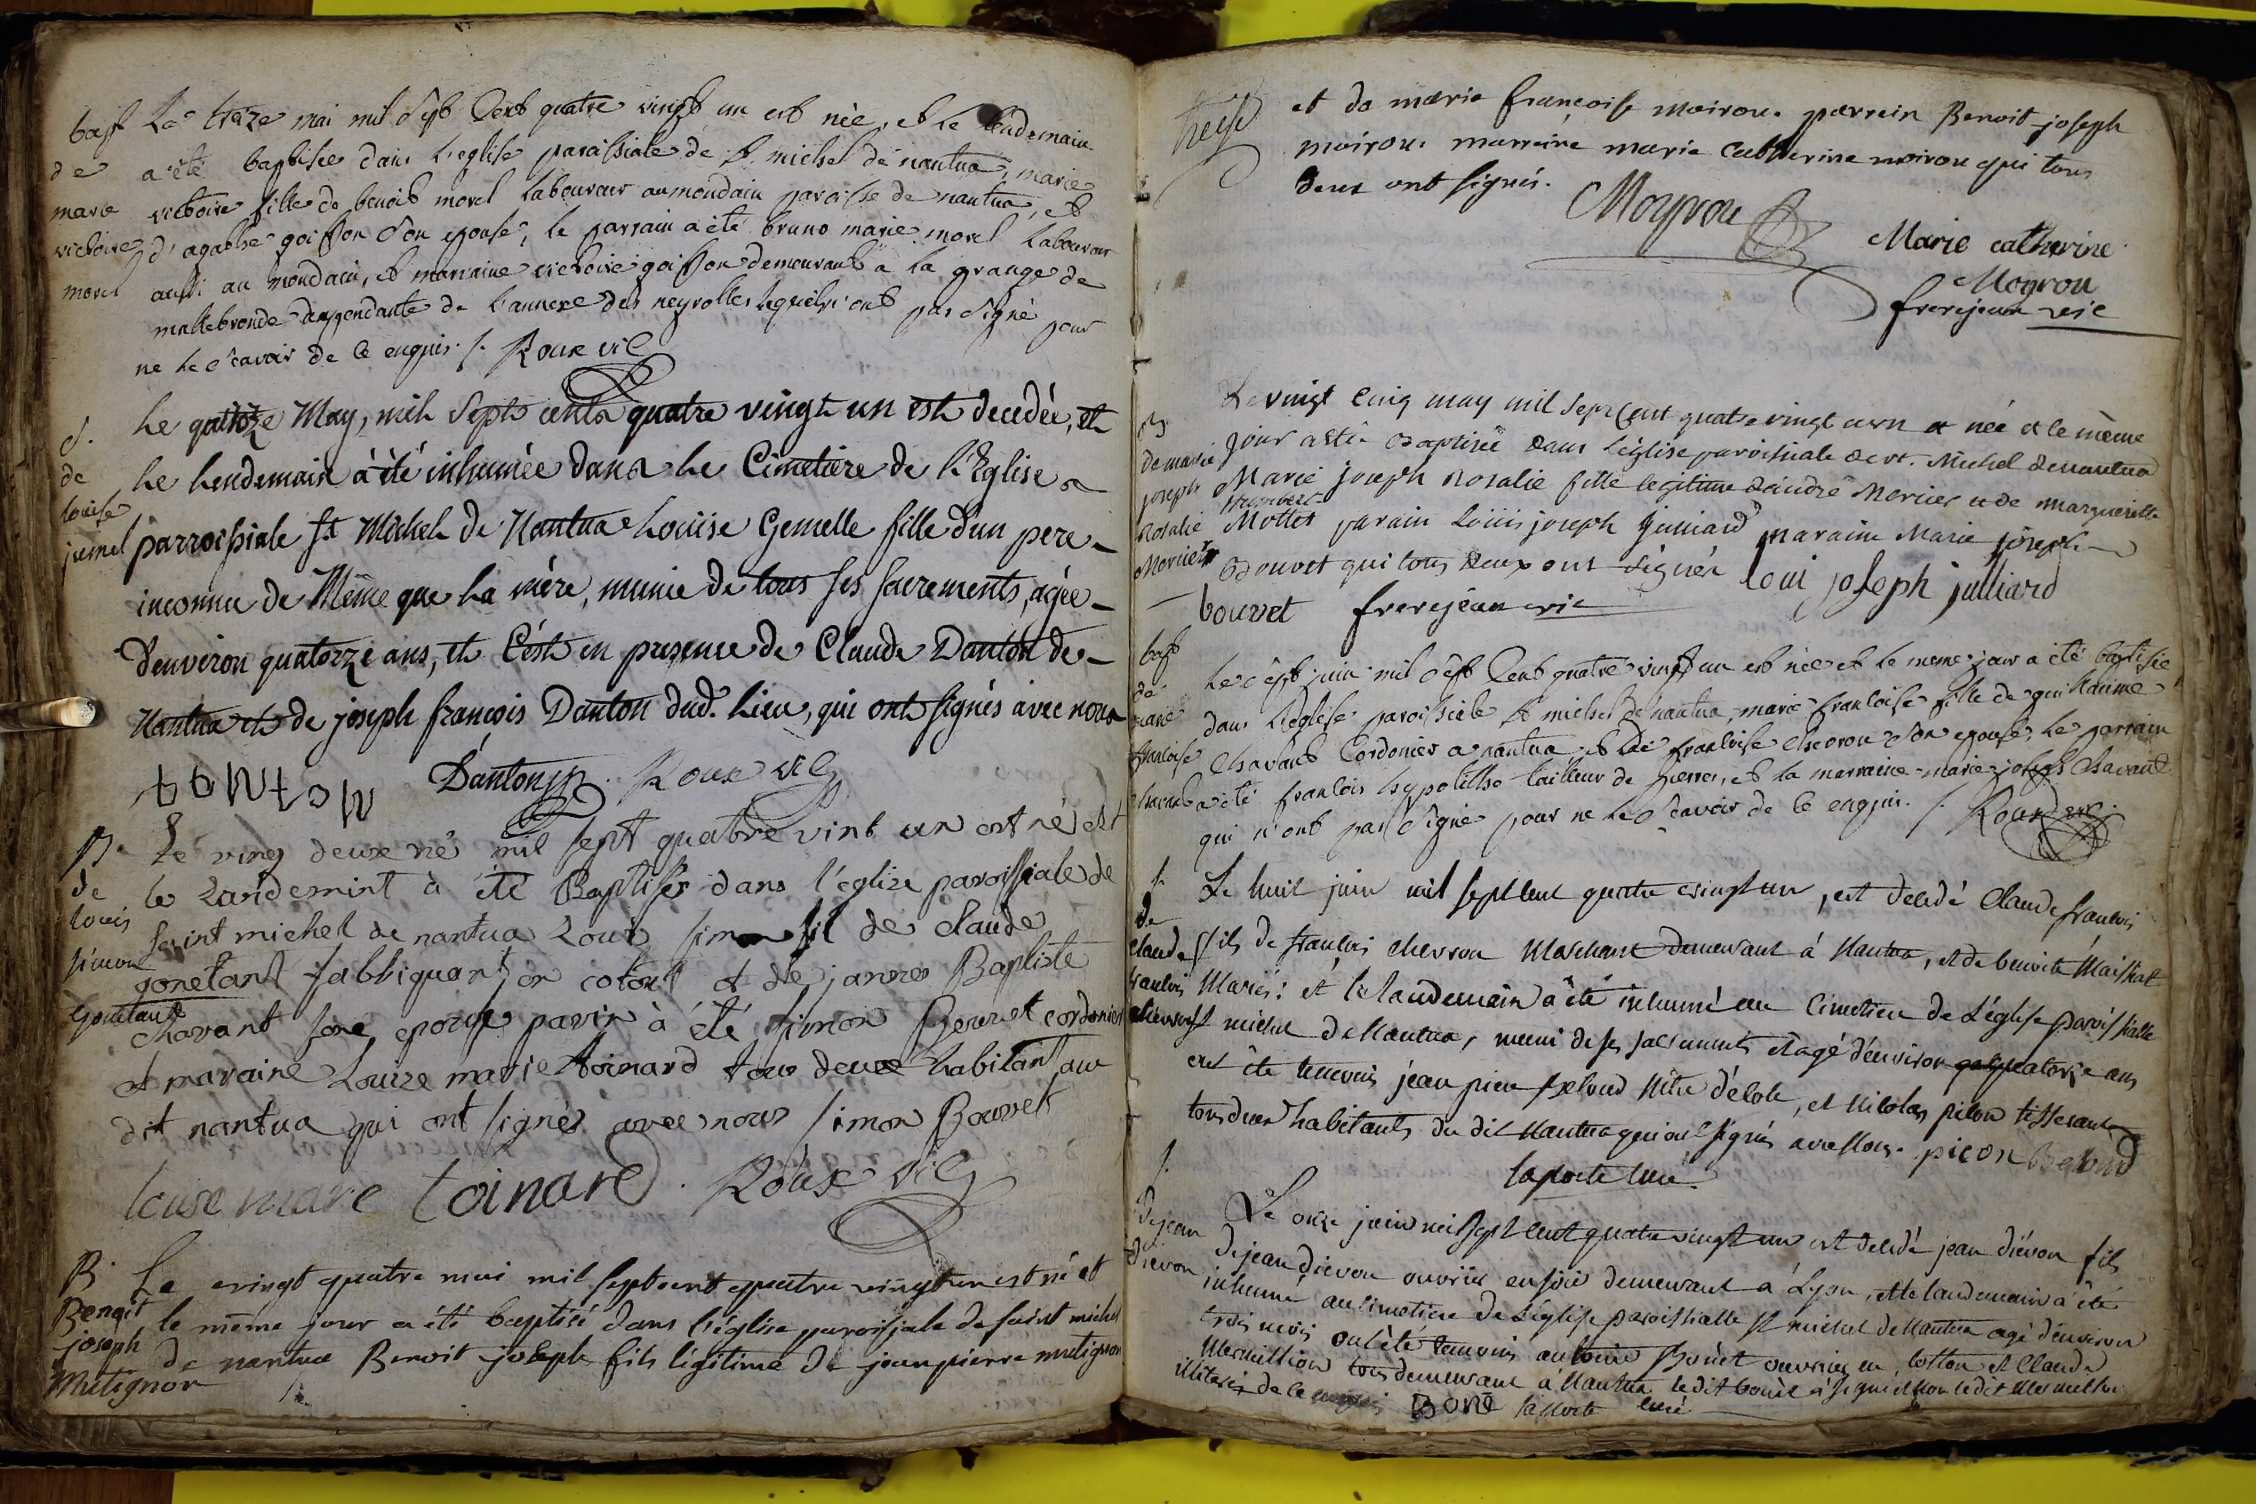 bapt
de
marie
victoire
morel
Le treize mai mil sept cent quatre vingt un est née, et le lendemain
a été baptisée dans l'eglise paroissiale de st michel de nantua, marie
victoire fille de benoit morel laboureur au mondain paroisse de nantua, et
d'agathe goisson son epouse, le parrain a été bruno marie morel laboureur
aussi au mondain, et marraine victoire goisson demeurant à la grange de
mallebronde dependante de l'annexe des neyrolles lequels n'ont pas signé pour
ne le scavoir de ce enquis ./. Roux vic
S.
de
louise
jumel
Le quatorze May, mil sept cents quatre vingt un est decedée, et
le lendemain à été inhumée dans le Cimetière de l'Eglise
parroissiale st Michel de Nantua Louise Gemelle fille d'un pere
inconnu de Même que la mère, munie de tous ses sacrements, agée
d'environ quatorze ans, et C'est en presence de Claude Danton de
Nantua et de joseph françois Danton dud. lieu, qui ont signés avec nous
Danton Roux vic
B.
de
louis
simon
Gonetant
Le ving deux me mil sept quatre vint un est né et
le landemint à été Baptisés dans l'eglize paroissiale de
seint michel de nantua Louis simon fil de claude
gonetant fabbriquant en coton et de janne Baptiste
chavant sone epouze parin à été simon Bouvet cordonier
et maraine Louize marie toinard tous deux habitant au
dit nantua qui ont signés avec nous simon Bouvet
louise marie toinard . Roux vic
B.
Benoit
joseph
Mutignon
Le vingt quatre mai mil sept cent quatre vingt un est né et
le même jour a été baptisé dans l'église paroissiale de saint michel
de nantua Benoit joseph fils légitime de jean pierre mutignon
et de marie françoise moirou. parrein Benoit joseph
moirou. marreine marie catherine moirou qui tous
deux ont signés.
Moyrou
Marie catherine
Moyrou
frerejean vic
B.
de marie
joseph
Rosalie
Mercier
Le vingt cinq may mil sept cent quatre vingt un est née et le même
jour a été Baptisée dans l'église paroissiale de st. Michel de nantua
Marie joseph Rosalie fille legitime d'andré Mercier et de Marguerite
humbert
Mottet parain Louis joseph juliard maraine Marie joseph
Bouvet qui tous deux ont signés loui joseph julliard
bouvet frerejean vic
bapt
de
marie
francoise
chavant
Le sept juin mil sept cent quatre vingt un est née et le meme jour a été baptisée
dans l'eglise paroissiale st michel de nantua, marie francoise fille de guillaume
chavant cordonier a nantua et de francoise chevron son epouse, le parrain
a été francois hypolithe tailleur de pierres, et la marraine marie joseph chavant
qui n'ont pas signé pour ne le scavoir de ce enquis. ./. Roux vic
S.
de
claude
francois
chevron
Le huit juin mil sept cent quatre vingt un, est decedé Claude francois
fils de francois chevron Marchant demeurant à Nantua, et de benoite Maissiat
Mariés: et le laudemain à été inhumé au Cimetiere de L'église paroissialle
st michel de Nantua, muni de ses sacrements et agé d'environ quatorze ans
ont été temoins jean pierre Belond Mtre d'école, et Nicolas picon tisserant
tous deux habitants du dit Nantua qui ont signés avec nous. picon Belond
laporte curé
S.
de jean
diévon
Le onze juin mil sept cent quatre vingt un est decedé jean diévon fils
de jean diévon ouvrier en soie demeurant à Lyon, et le landemain à été
inhumé au cimetiere de L'église paroissialle st michel de Nantua agé d'environ
trois mois ont été temoins antoine Bonet ouvrier en cotton et Claude
Mermillion tous demeurant à Nantua le dit bonet à signé et non ledit Mermillion
illiteré de ce enquis Bone laporte curé